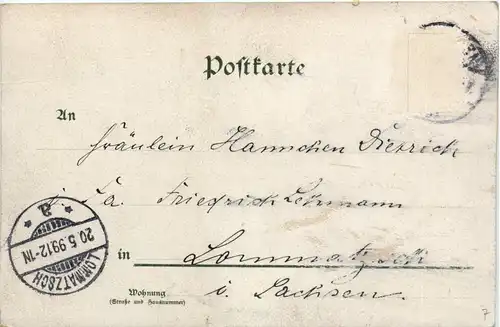 Postkarte
An
Fräulein Hannchen Dietrich
i. Fa. Friedrich Lehmann
in Lommatzsch
i. Sachsen.
Wohnung
(Straße und Hausnummer)
* a *
20.5.99.12-1N
LOMMATZSCH
7